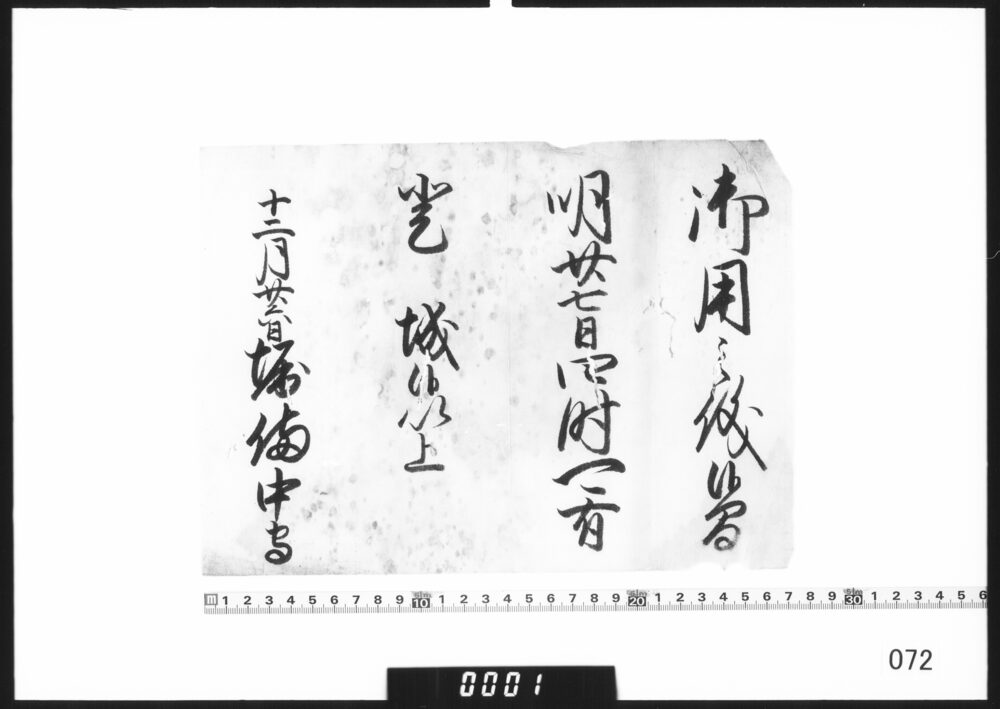 御用之儀候間
明廿七日四時可有
登　城候以上
十二月廿六日堀備中守
m 1 2 3 4 5 6 7 8 9 10 1 2 3 4 5 6 7 8 9 20 1 2 3 4 5 6 7 8 9 30 1 2 3 4 5 6
072
0001